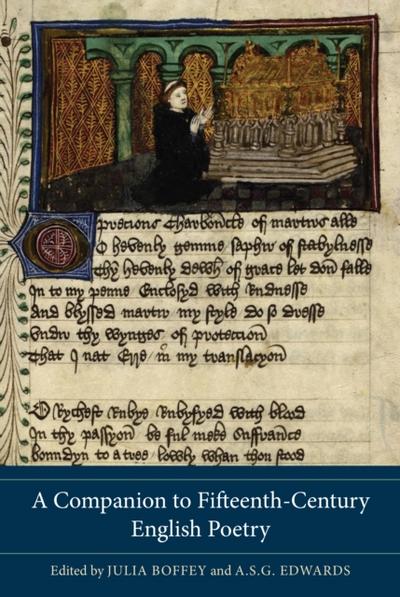 O precious Charboncle of martirs alle
O hevenly gemme saphir of stabylnesse
Thy hevenly dewh of grace let don falle
In to my penne Enclosyd with Rudnesse
And blyssed martir my style do so dresse
Undir thy wynges of protection
That I nat Erre in my translacyon
O Rychest Rubye Rubyfyed with blood
In thy passyon be ful meke Suffrance
bowndyn to a tree lowly whan thou stood
A Companion to Fifteenth-Century
English Poetry
Edited by JULIA BOFFEY and A.S.G. EDWARDS